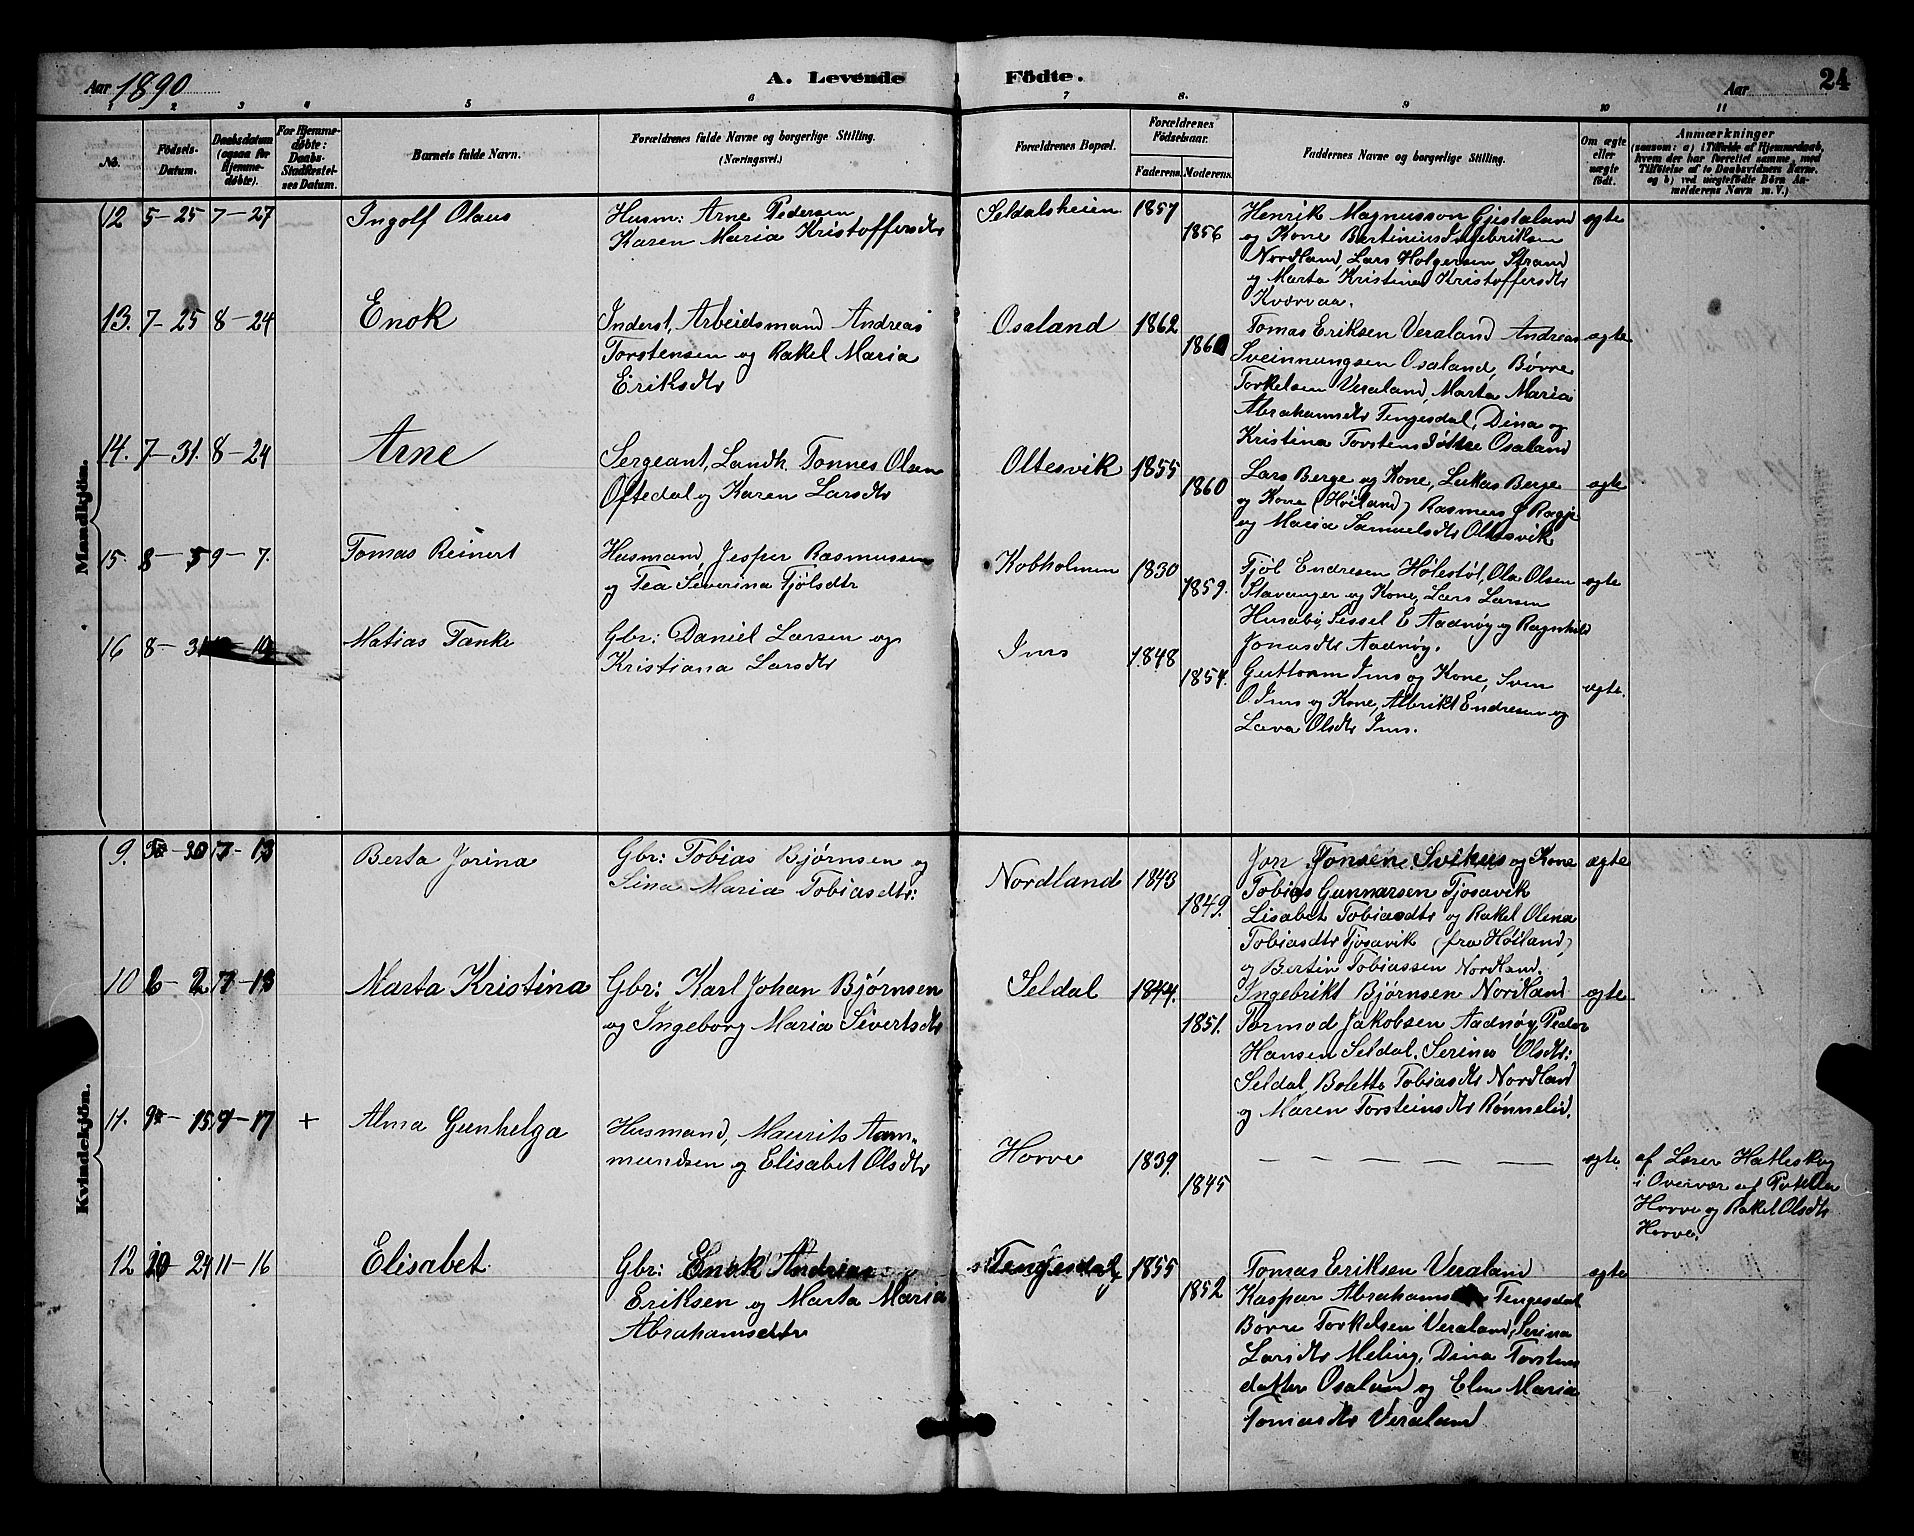 Aar 1890
A. Levende Födte.
Aar
24
1 2 3 4 5 6 7 8. 9 10 11
No.
Födsels-Datum.
Daabsdatum (ogsaa for Hjemmedøbte).
For Hjemmedøbte: Daabs-Stadfæstelses Datum.
Barnets fulde Navn.
Forældrenes fulde Navne og borgerlige Stilling.
(Næringsvei.)
Forældrenes Bopæl.
Forældrenes Födselsaar.
Faderens. Moderens.
Faddernes Navne og borgerlige Stilling.
Om ægte eller uægte födt.
Anmærkninger
(saasom: a) i Tilfælde af Hjemmedaab, hvem der har forrettet samme, med Tilföielse af to Daabsvidners Navne, og b) ved uægtefödte Börn Anmelderens Navn m. V.)
Mandkjön.
12 5-25 7-27 Ingolf Olaus
Husm: Arne Pedersen
Karen Maria Kristoffersdtr
Seldalsheien 1857
1856
Henrik Magnusson Gjestaland
og Kone Bertinius Ingebriksen
Nordland, Lars Holgersen Strand
og Marta Kristine Kristoffersdtr
Kværvaa.
ægte
13. 7-25 8-24 Enok
Inderst, Arbeidsmand Andreas
Torstensen og Rakel Maria
Eriksdtr
Osaland 1862
1860
Tomas Eriksen Veraland Andreas
Sveinnungsen Osaland, Børre
Torkelsen Veraland, Marta Maria
Abrahamsdtr Tengesdal, Dina og
Kristina Torstensdøttre Osaland
ægte
14. 7-31. 8-24 Arne
Sergeant, Landh. Tønnes Olsen
Oftedal og Karen Larsdtr
Oltesvik 1855
1860
Lars Berge og Kone, Lukas Berge
og Kone (Høiland) Rasmus
og Maria Samuelsdtr Oltesvik
ægte
15. 8-5 9-7. Tomas Reinert
Husmand, Jesper Rasmussen
og Tea Severina Tjølsdtr
Kobholmen 1830
1859.
Tjøl Endresen Hølestøl, Ola Olsen
Stavanger og Kone, Lars Larsen
Husabø, Sessel E Aadnøy og Ragnhild
Jonasdtr Aadnøy.
ægte
16 8-31 Matias Tanke
Gbr: Daniel Larsen og
Kristiana Larsdtr
Ims 1848
1854.
Guttorm Ims og Kone, Sven
O. Ims og Kone, Albrikt Endresen og
Lava Olsdtr Ims.
ægte.
Kvindekjön.
9. 7-13 Berta Jorina
Gbr: Tobias Bjørnsen og
Sina Maria Tobiasdtr:
Nordland 1843
1849.
Jon Jonsen Svihus og Kone
Tobias Gunnarsen Tjosavik
Lisabet Tobiasdtr og Rakel Olena
Tobiasdtr Tjosavik (fra Høiland)
og Bertin Tobiassen Nordland.
ægte
10 6-2 7-13 Marta Kristina
Gbr: Karl Johan Bjørnsen
og Ingeborg Maria Sivertsdtr
Seldal 1844.
1851.
Ingebrikt Bjørnsen Nordland
Tormod Jakobsen Aadnøy, Peder
Hansen Seldal, Serina Olsdtr:
Seldal, Bolette Tobiasdtr Nordland
og Maren Torsteinsdtr Rønnelid.
ægte
11. 9-15 9-17 + Alma Gunhelga
Husmand, Maurits Aam-
mundsen og Elisabet Olsdtr
Horve 1839.
1845
— — — — —
ægte
af Lærer Hatleskog
i Overvær af
Horve og Rakel Olsdtr
Horve.
12 10-24 11-16 Elisabet
Gbr: Enok Andreas
Eriksen og Marta Maria
Abrahamsdtr
Tengesdal 1855
1852
Tomas Eriksen Veraland
Kaspar Abrahamsen Tengesdal
Børre Torkelsen Veraland, Serina
Larsdtr Meling, Dina Torstens
datter Osaland og Elen Maria
Tomasdtr Veraland
ægte